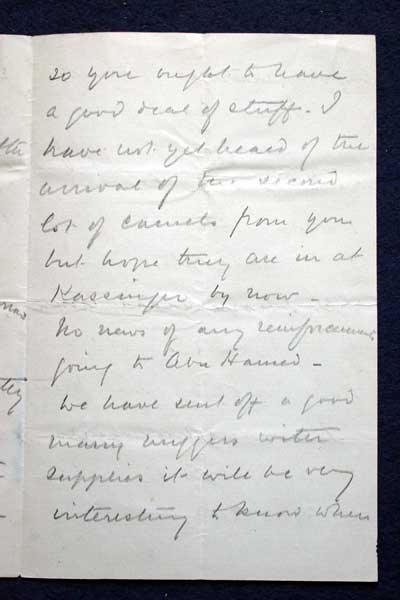 so you ought to have
a good deal of stuff. I
have not yet heard of the
arrival of the second
lot of camels from you
but hope they are in at
Kassinger by now –
No news of any reinforcements
going to Abu Hamed –
We have sent off a good
many niggers with
supplies it will be very
interesting to know when